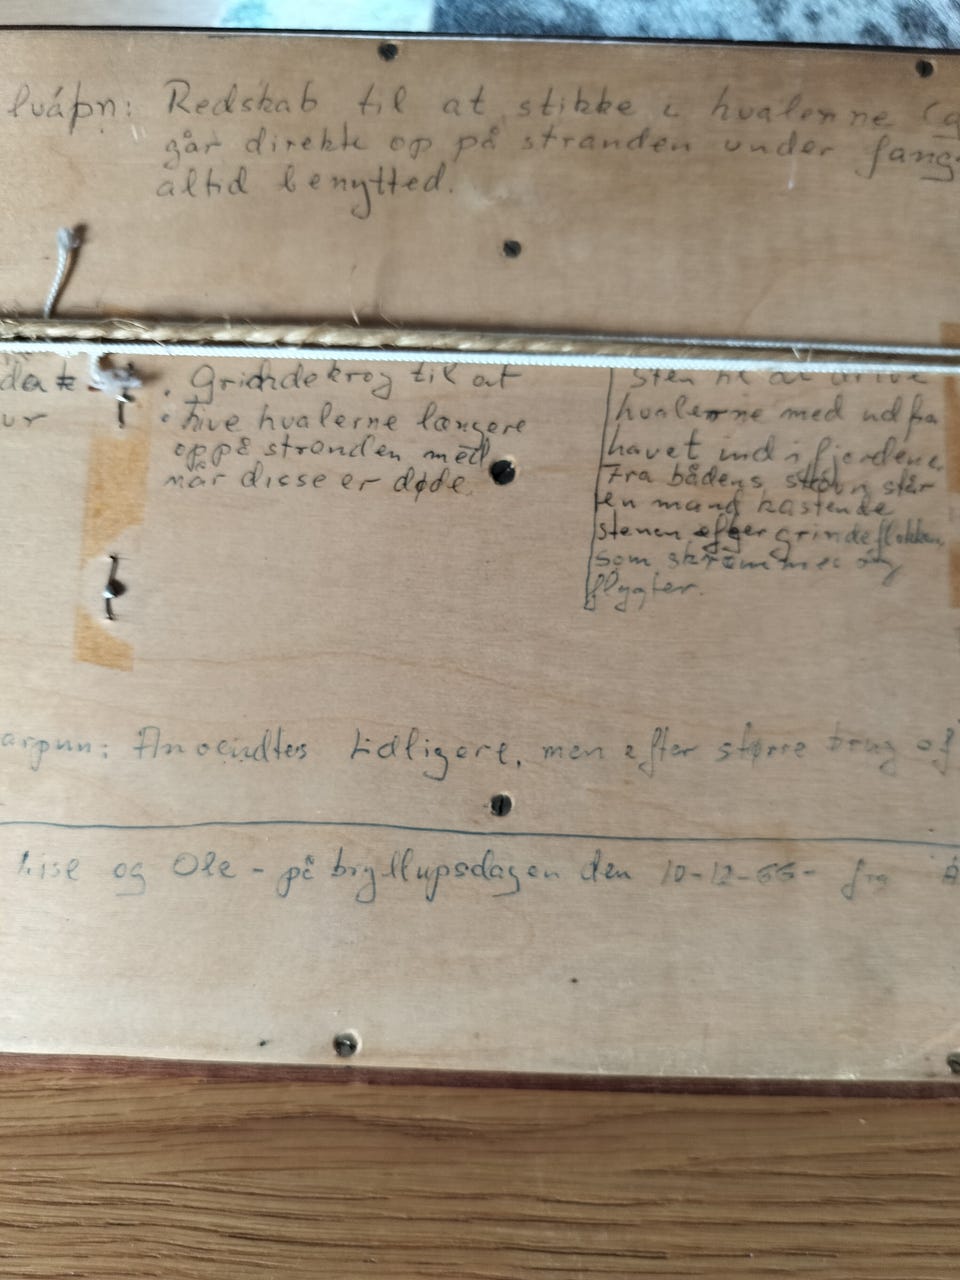 lvápn: Redskab til at stikke i hvalerne (g
går direkte op på stranden under fang
altid benytted.
Grindekrog til at
hive hvalerne længere
op på stranden med
når disse er døde.
ur
sten til at drive
hvalerne med ud fra
havet ind i fjordene.
Fra bådens stævn står
en mand kastende
stenen efter grindeflokken,
som skræmmes og
flygter.
arpun: Anvendtes tidligere, men efter større brug af
Lise og Ole - på bryllupsdagen den 10-12-66- fra